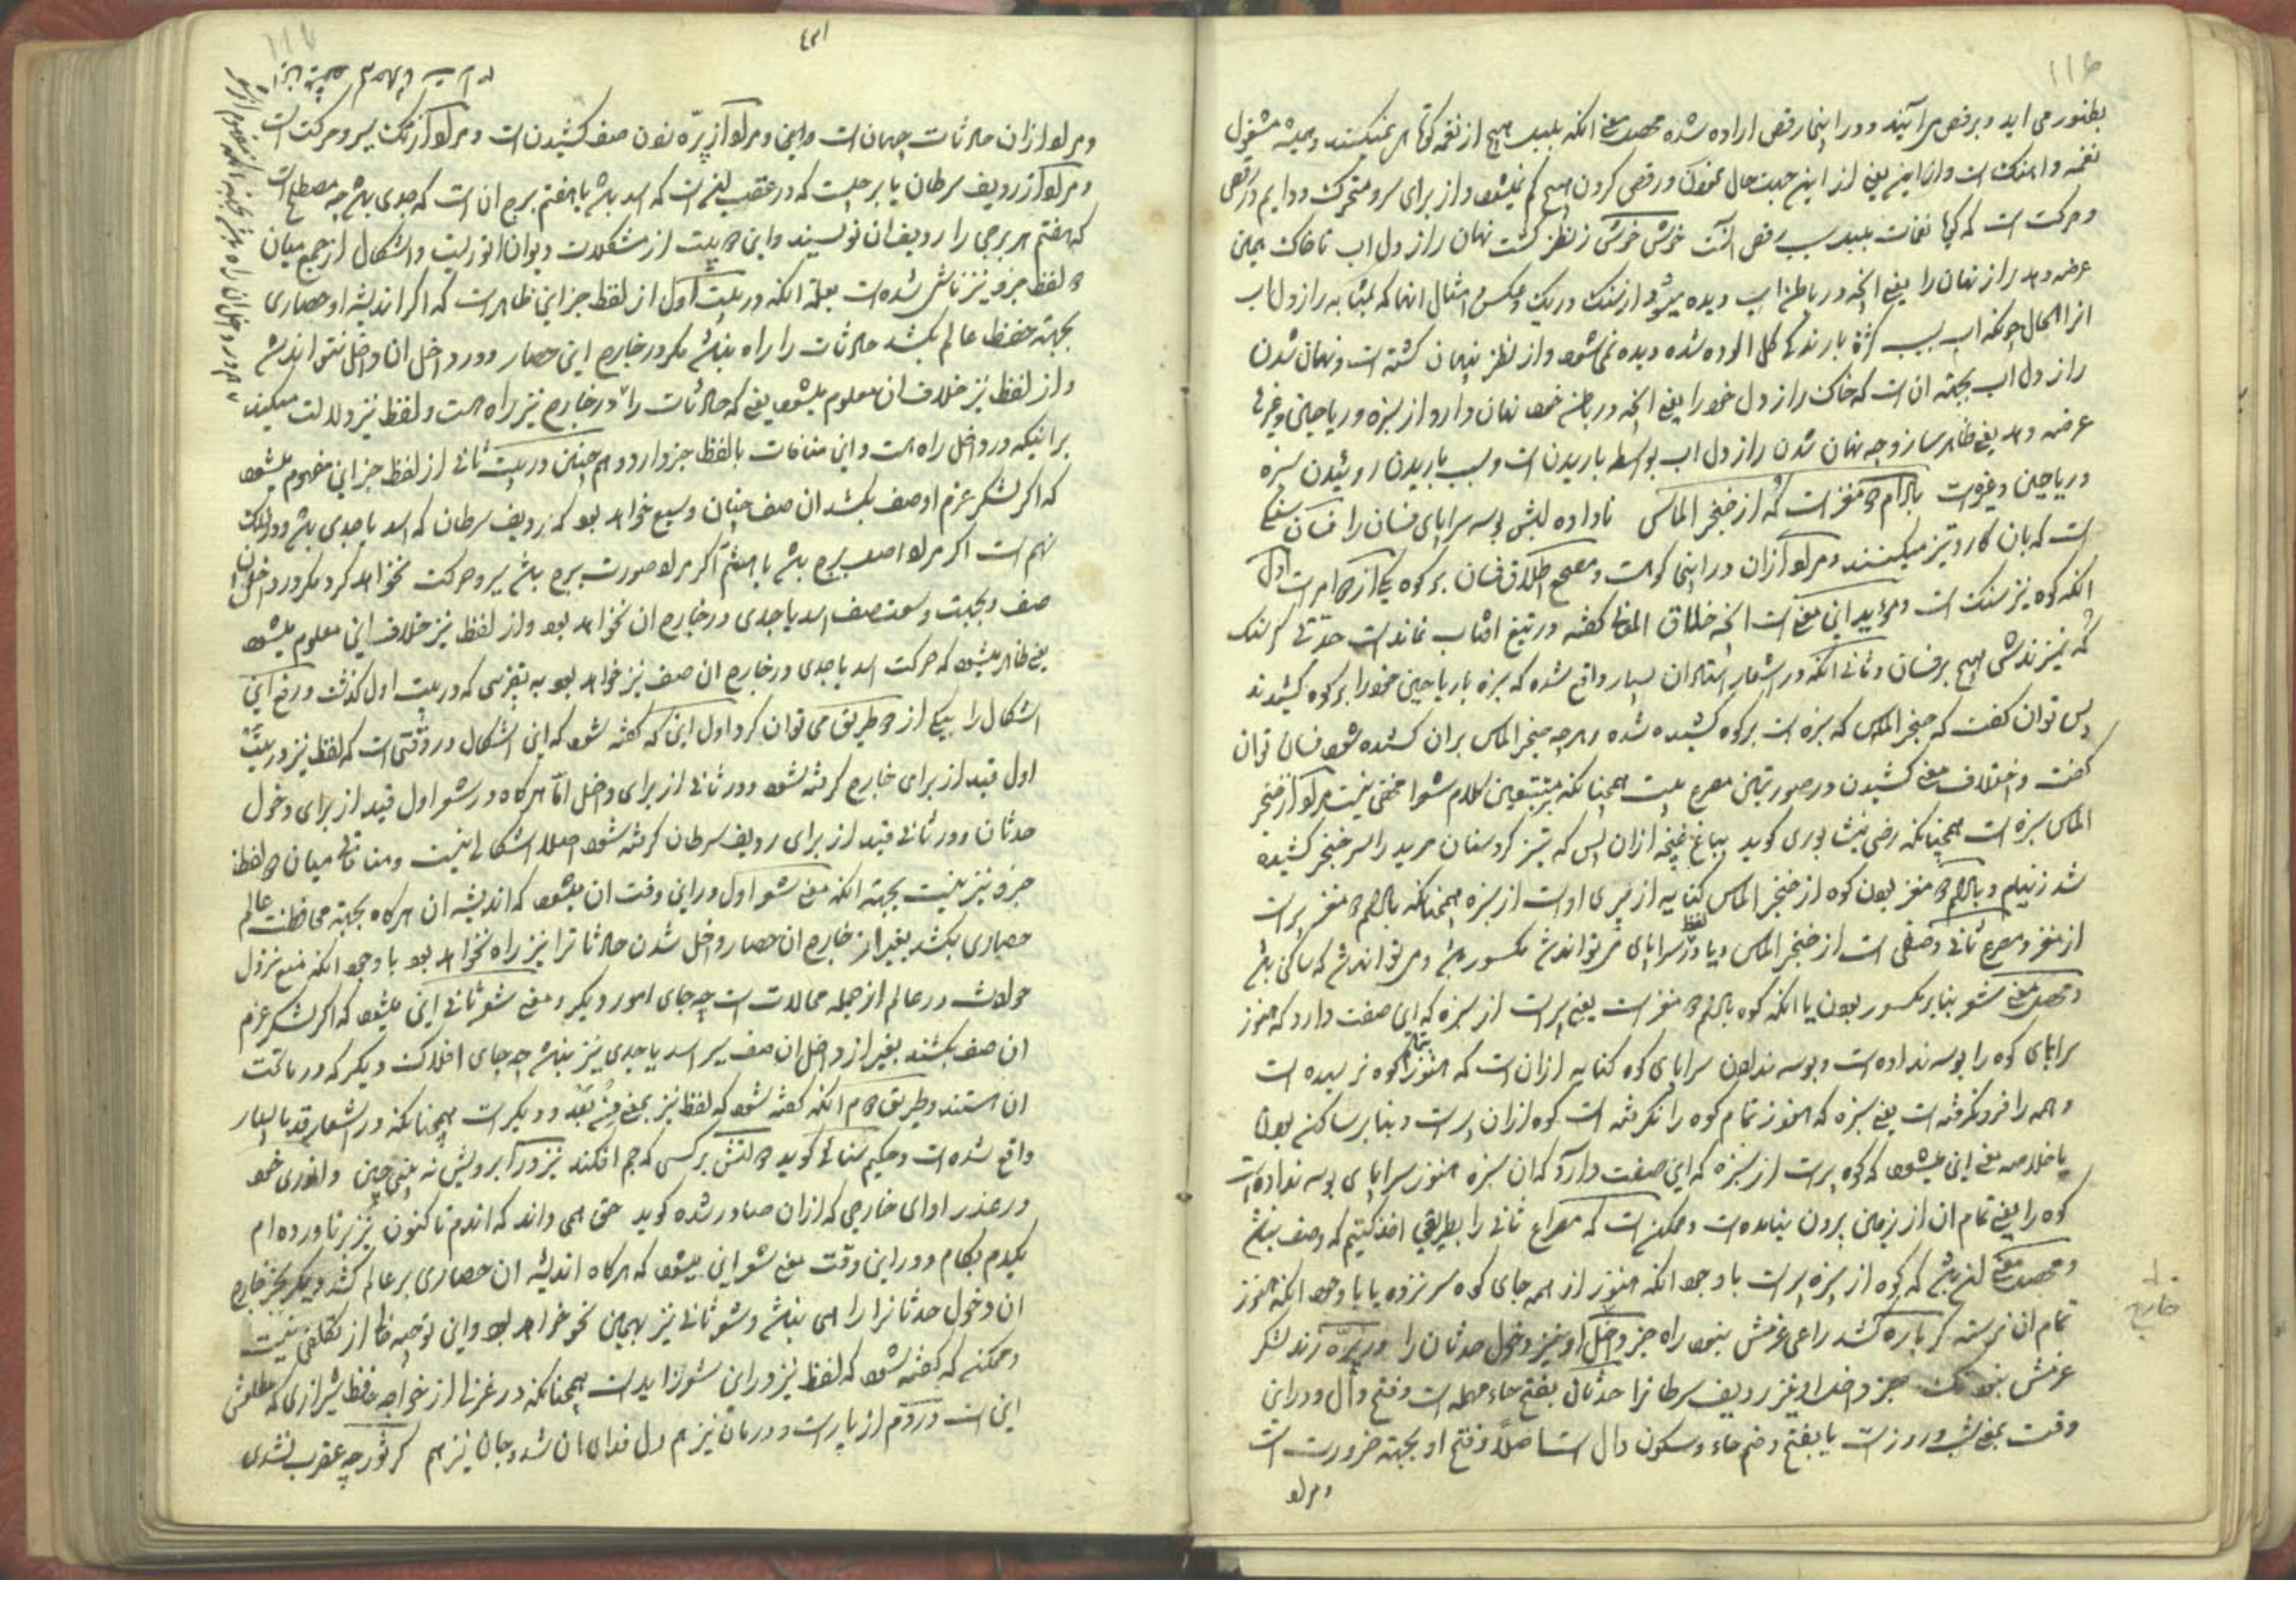 بطنور می اید و برقص می آیند و در اینجا رقص اراده شده محصل معنی انکه بلبل هیچ از نغمه کوتاهی نمیکند و همیشه مشغول
نغمه و اهنک است و از این یعنی از این جهت حال عنوان و رقص کردن هیچ کم نمیشود و از برای سرو متحرک و دایم در رقص
و حرکت است که کویا نغمات بلبل سبب رقص اوست خوش خوش ز نظر کشت نهان راز دل اب تا خاک همین
عرضه دهد راز نهان را یعنی انچه در باطن اب دیده میشود از سنک و ریک و عکس و امثال انها که بمثابه راز دل اب
انرا الحال چونکه اب بسبب کثرة بارندکی کل الوده شده دیده نمی شود و از نظر پنهان کشته است و نهان شدن
راز دل اب بجهة ان است که خاک راز دل خود را یعنی انچه در باطن خود نهان دارد از سبزه و ریاحین و غیرها
عرضه دهد یعنی ظاهر سازد چه نهان شدن راز دل اب بواسطه باریدن است و بسبب باریدن روئیدن سبزه
و ریاحین و غیره است بادام دو مغز است که از خنجر الماس ناداده لبش بوسه سراپای فسان را فسان سنکی
است که بان کارد تیز میکنند و مراد از ان در اینجا کوه است و مصحح اطلاق فسان بر کوه یکی از دو امر است اول
انکه کوه نیز سنک است و مؤید این معنی است انچه خلاق المعانی کفته در تیغ افتاب نماندست حدتی کز سنک
که نیز ندش هیچ بر فسان و ثانی انکه در اشعار استادان بسیار واقع شده که سبزه یا ریاحین خود را بر کوه کشیدند
پس توان کفت که خنجر الماس که سبزه است بر کوه کشیده شده و هر چه خنجر الماس بران کشیده شود فسان توان
کفت و اختلاف معنی کشیدن در صورتین مصرع نیست همچنانکه بر متتبعین کلام شعرا مخفی نیست و مراد از خنجر
الماس سبزه است همچنانکه رضی نیشابوری کوید بباغ غنچه ازان پس که تیز کرد سنان مر بید را سر خنجر کشیده
شد ز نیام و بادام دو مغز بودن کوه از خنجر الماس کنایه از پری اوست از سبزه همچنانکه بادام دو مغز پر است
از مغز و مصرع ثانی وصفی است از خنجر الماس و یا در لفظ سراپای می تواند که مکسور باشد و می تواند که ساکن باشد
و محصل معنی شعر بنا بر مکسور بودن یا انکه کوه بادام دو مغز است یعنی پر است از سبزه که این صفت دارد که هنوز
سراپای کوه را بوسه نداده است و بوسه ندادن سراپای کوه کنایه ازان است که هنوز بتمام کوه نرسیده است
و همه را فرو نکرفته است یعنی سبزه که هنوز تمام کوه را نکرفته است کوه ازان پر است و بنا بر ساکن بودن
یا خلاصه معنی این میشود که کوه پر است از سبزه که این صفت دارد که ان سبزه هنوز سراپای بوسه نداده است
کوه را یعنی تمام ان از زمین بیرون نیامده است و ممکن است که مصراع ثانی را بطریقی اخذ کنیم که وصف نباشد
و محصل معنی این باشد که کوه از سبزه پر است با وجود انکه هنوز از همه جای کوه سر نزده یا با وجود انکه هنوز
تمام ان نرسته کر باره کشد راعی عزمش نبود راه جز داخل او نیز دخول حدثان را ور پرّه زند لشکر
عزمش نبود تک جز داخل او نیز ردیف سرطانرا حدثان بفتح حاء مهمله است و فتح دال و در این
وقت بمعنی شب و روز است یا بفتح و ضم حاء و سکون دال است اصلاً و فتح او بجهة ضرورت است
و مراد
خارج
و مراد ازان حادثات جهان است و این و مراد از پرّه نون صف کشیدن است و مراد از تک سیر و حرکت است
و مراد از ردیف سرطان یا برجیست که در عقب اینست که اسد باشد یا هفتم برج ان است که جدی باشد چه مصطلح است
که هفتم هر برجی را ردیف ان نویسند و این دو بیت از مشکلات دیوان انوریست و اشکال از جمع میان
دو لفظ جز و نیز ناشی شده است بعلة انکه در بیت اول از لفظ جز این ظاهر است که اکر اندیشه او حصاری
بجهة حفظ عالم بکشد حادثات را راه نباشد مکر در خارج این حصار و در داخل ان داخل نتواند شد
و از لفظ نیز خلاف ان معلوم میشود یعنی که حادثات را در خارج نیز راه است و لفظ نیز دلالت میکند
بر اینکه در داخل راه است و این منافات با لفظ جز دارد و همچنین در بیت ثانی از لفظ جز این مفهوم میشود
که اکر لشکر عزم او صف بکشد ان صف چنان وسیع خواهد بود که ردیف سرطان که اسد یا جدی باشد و در فلک
نهم است اکر مراد اصل برج باشد یا هشتم اکر مراد صورت برج باشد سیر و حرکت نخواهد کرد مکر در داخل ان
صف و بجهت وسعت صف اسد یا جدی در خارج ان نخواهد بود و از لفظ نیز خلاف این معلوم میشود
یعنی ظاهر میشود که حرکت اسد یا جدی در خارج ان صف نیز خواهد بود به تقریبی که در بیت اول کذشت و رفع این
اشکال را بیکی از دو طریق می توان کرد اول این که کفته شود که این اشکال در وقتی است که لفظ نیز در بیت
اول قید از برای خارج کرفته شود و در ثانی از برای داخل امّا هرکاه در شعر اول قید از برای دخول
حدثان و در ثانی قید از برای ردیف سرطان کرفته شود اصلا اشکالی نیست و منافاتی میان دو لفظ
جز و نیز نیست بجهة انکه معنی شعر اول در این وقت ان میشود که اندیشه ان هرکاه بجهة محافظت عالم
حصاری بکشد بغیر از خارج ان حصار داخل شدن حادثاترا نیز راه نخواهد بود با وجود انکه منع نزول
حوادث در عالم از جمله محالات است چه جای امور دیکر و معنی شعر ثانی این میشود که اکر لشکر عزم
ان صف بکشند بغیر از داخل ان صف سیر اسد یا جدی نیز نباشد چه جای افلاک دیکر که در ماتحت
ان استند و طریق دوم انکه کفته شود که لفظ نیز بمعنی من بعد و دیکر است همچنانکه در اشعار قدما بسیار
واقع شده است و حکیم سنائی کوید دولتش بر کسی که چم افکند نیز در ابرویش نه بینی چین و انوری خود
در عذر ادای خارجی که ازان صادر شده کوید حق همی داند که اندم تا کنون نیز برناورده ام
یکدم بکام و در این وقت معنی شعر این میشود که هرکاه اندیشه ان حصاری بر عالم کشد دیکر بجز خارج
ان دخول حدثانرا راهی نباشد و شعر ثانی نیز بهمین نحو خواهد بود و این توجیه خالی از تکلفی نیست
و ممکنست که کفته شود که لفظ نیز در این شعر زاید است همچنانکه در غزلی از خواجه حافظ شیرازی که مطلعش
این است دردم از یار است و درمان نیز هم دل فدای ان شد و جان نیز هم کر ثور چه عقرب نشدی